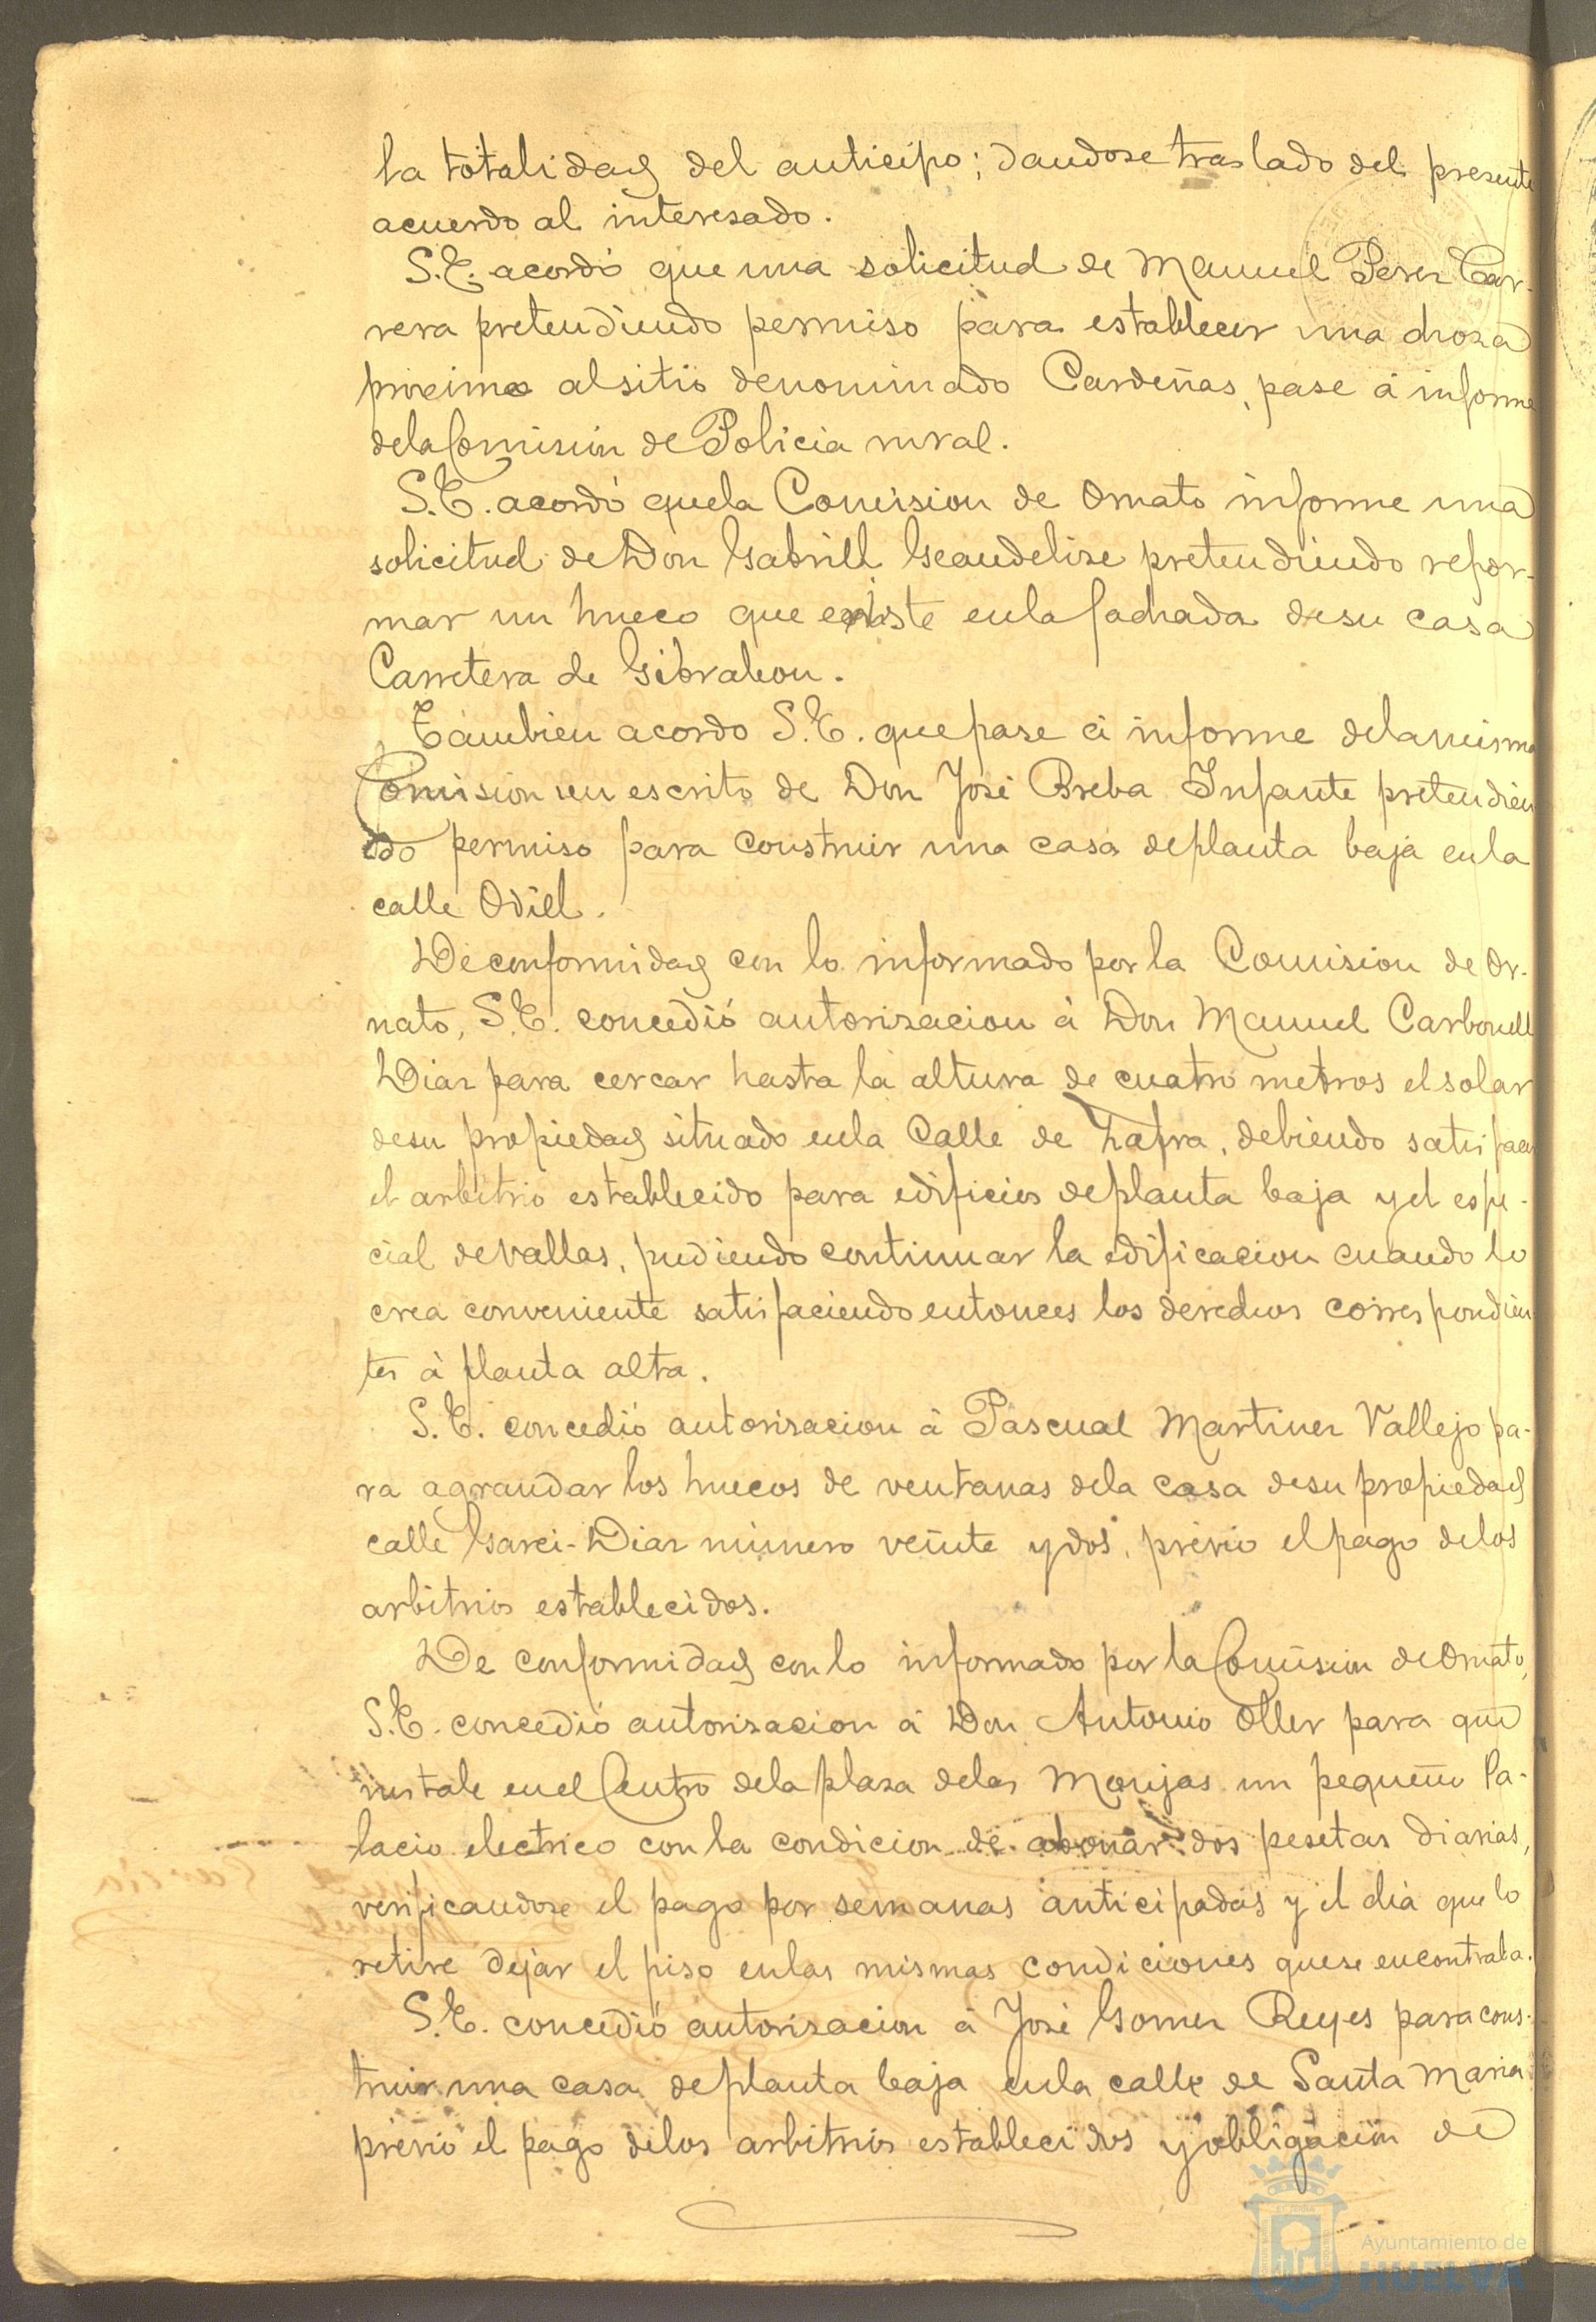 la totalidad del anticipo; dandose traslado del presente
acuerdo al interesado.
S.E. acordó que una solicitud de Manuel Perez Car-
rera pretendiendo permiso para establecer una choza
próximo al sitio denominado Cardeñas, pase á informe
de la Comision de Policia rural.
S.E. acordó que la Comision de Ornato informe una
solicitud de Don Gabriel pretendiendo refor-
mar un hueco que existe en la fachada de su casa
Carretera de Gibraleon.
Tambien acordo S.E. que pase á informe de la misma
Comision un escrito de Don José Breba Infante pretendien
do permiso para construir una casa de planta baja en la
calle Odiel.
De conformidad con lo informado por la Comision de Or-
nato, S.E. concedió autorizacion á Don Manuel Carbonell
Diaz para cercar hasta la altura de cuatro metros el solar
de su propiedad situado en la Calle de Zafra, debiendo satisfacer
el arbitrio establecido para edificios de planta baja y el espe-
cial de vallas, pudiendo continuar la edificacion cuando lo
crea conveniente satisfaciendo entonces los derechos correspondien
tes á planta alta.
S.E. concedió autorizacion á Pascual Martinez Vallejo pa-
ra agrandar los huecos de ventanas de la casa de su propiedad
calle Garci-Diaz número veinte y dos, prévio el pago de los
arbitrios establecidos.
De conformidad con lo informado por la Comision de Ornato,
S.E. concedió autorizacion á Don Antonio Oller para que
instale en el Centro de la plaza de las Monjas un pequeño Pa-
lacio electrico con la condicion de abonar dos pesetas diarias,
verificandose el pago por semanas anticipadas y el dia que lo
retire dejar el piso en las mismas condiciones que se encontraba.
S.E. concedió autorizacion á José Gomez Reyes para cons-
truir una casa de planta baja en la calle de Santa Maria
prévio el pago de los arbitrios establecidos y obligacion de
Ayuntamiento de
HUELVA